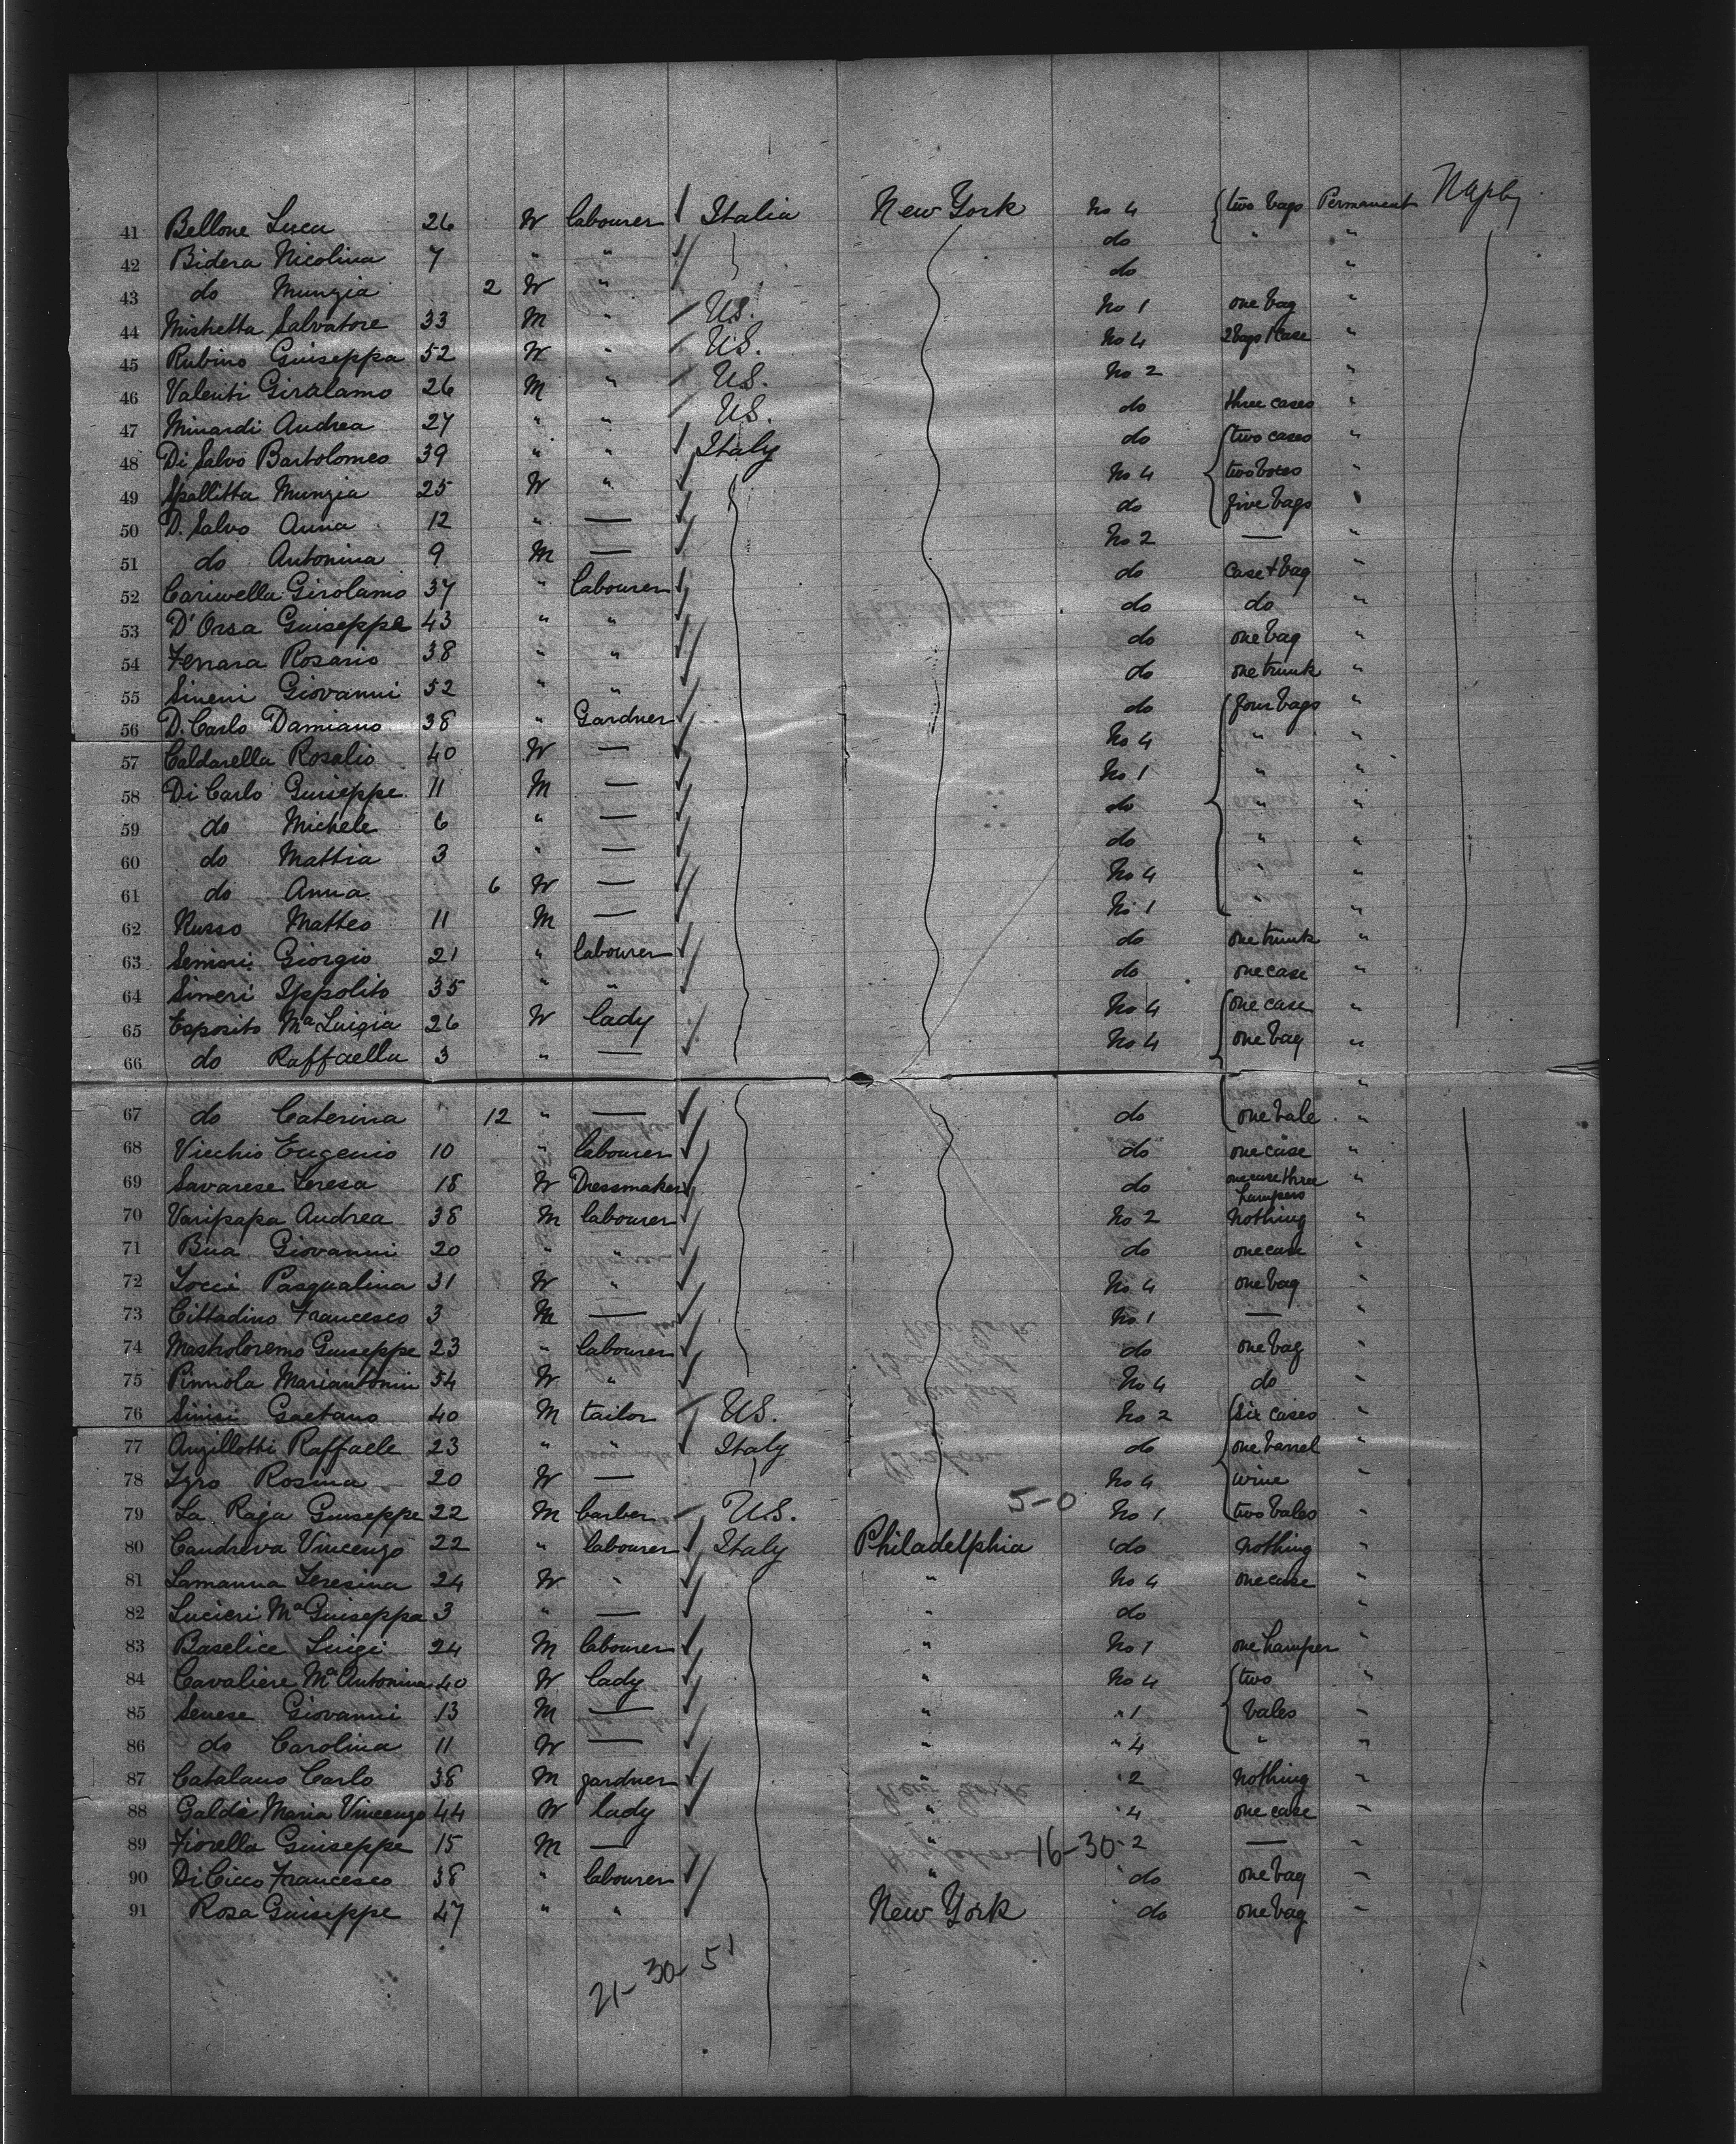 41 Bellone Luca 26 W labourer Italia New York No 4 two bags Permanent
42 Bidera Nicolina 7 " " do " "
43 do Munzia 2 W " do "
44 Mistretta Salvatore 33 M " U.S. No 1 one bag "
45 Rubino Guiseppa 52 W " U.S. No 4 2 bags 1 case "
46 Valenti Giralamo 26 M " U.S. No 2 "
47 Minardi Andrea 27 " " U.S. do three cases "
48 Di Salvo Bartolomeo 39 " " Italy do two cases "
49 Spallitta Munzia 25 W " No 4 two boxes "
50 D. Salvo Anna 12 " — do five bags "
51 do Antonina 9 M — No 2 — "
52 Girolamo 37 " labourer do case + bag "
53 D'Orsa Guiseppe 43 " " do do "
54 Ferrara Rosario 38 " " do one bag "
55 Sineni Giovanni 52 " " do one trunk "
56 D. Carlo Damiano 38 " Gardner do four bags "
57 Caldarella Rosalio 40 W — No 4 " "
58 Di Carlo Guiseppe 11 M — No 1 " "
59 do Michele 6 " — do " "
60 do Mattia 3 " — do " "
61 do Anna 6 W — No 4 " "
62 Russo Matteo 11 M — No 1 " "
63 Giorgio 21 " labourer do one trunk "
64 Simeri Ippolito 35 " " do one case "
65 Esposito Ma Luigia 26 W lady No 4 one case "
66 do Raffaella 3 " — No 4 one bag "
67 do Caterina 12 " — do one bale "
68 Vicchio Eugenio 10 " labourer do one case "
69 Savarese Teresa 18 W Dressmaker do one case three hampers "
70 Varipapa Andrea 38 M labourer No 2 nothing "
71 Bua Giovanni 20 " " do one case "
72 Tocci Pasqualina 31 W " No 4 one bag "
73 Cittadino Francesco 3 M — No 1 — "
74 Mastroloremo Guiseppe 23 " labourer do one bag "
75 Pinnola Mariantonia 54 W " No 4 do "
76 Sinisi Gaetano 40 M tailor U.S. No 2 six cases "
77 Anzillotti Raffaele 23 " " Italy do one barrel "
78 Rosina 20 W — No 4 wine "
79 La Raja Guiseppe 22 M barber U.S. 5-0 No 1 two bales "
80 Candreva Vincenzo 22 " labourer Italy Philadelphia do nothing "
81 Lamanna Teresina 24 W " " No 4 one case "
82 Lucieri Ma Guiseppa 3 " — " do "
83 Baselice Luigi 24 M labourer " No 1 one hamper "
84 Cavaliere Ma Antonina 40 W lady " No 4 two "
85 Senese Giovanni 13 M — " " 1 bales "
86 do Carolina 11 W — " " 4 " "
87 Catalano Carlo 38 M gardner " " 2 nothing "
88 Galdi Maria Vincenzo 44 W lady " " 4 one case "
89 Fiorella Guiseppe 15 M — " 16-30 " 2 — "
90 Di Cicco Francesco 38 " labourer " do one bag "
91 Rosa Guiseppe 47 " " New York do one bag "
21-30-51